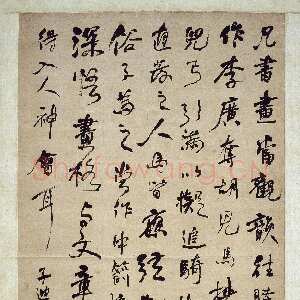 凡書畫當觀韻往時
作李廣奪胡兒馬挾
兒弓引滿以擬追騎
直發之人馬皆應弦
俗子為之當作中箭
深悟畫格与文章
得入人神會耳